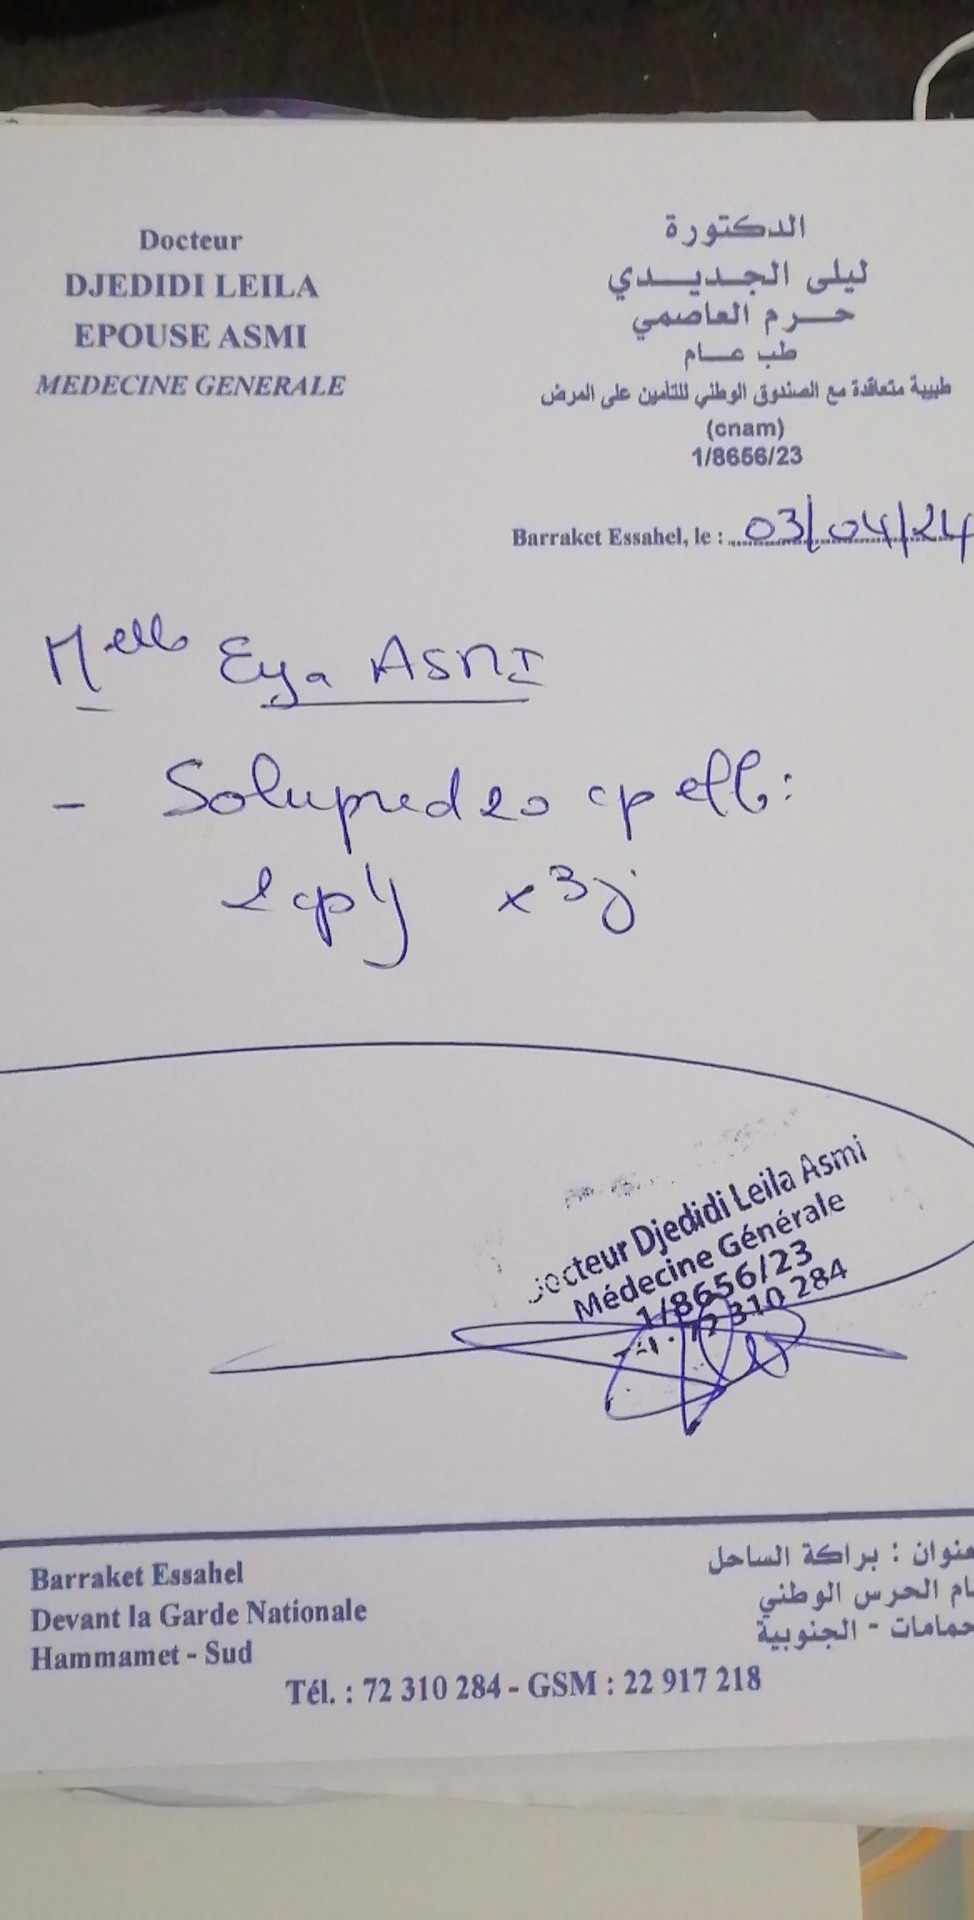 Docteur
DJEDIDI LEILA
EPOUSE ASMI
MEDECINE GENERALE
الدكتورة
ليلى الجديدي
حرم العاصمي
طب عام
طبيبة متعاقدة مع الصندوق الوطني للتأمين على المرض
(cnam)
1/8656/23
Barraket Essahel, le : 03/04/24
Melle Eya ASMI
- Solupred 20 cp eff:
cp/j x3j
Docteur Djedidi Leila Asmi
Médecine Générale
1/8656/23
72 310 284
Barraket Essahel
Devant la Garde Nationale
Hammamet - Sud
عنوان : براكة الساحل
ام الحرس الوطني
حمامات - الجنوبية
Tél. : 72 310 284 - GSM : 22 917 218